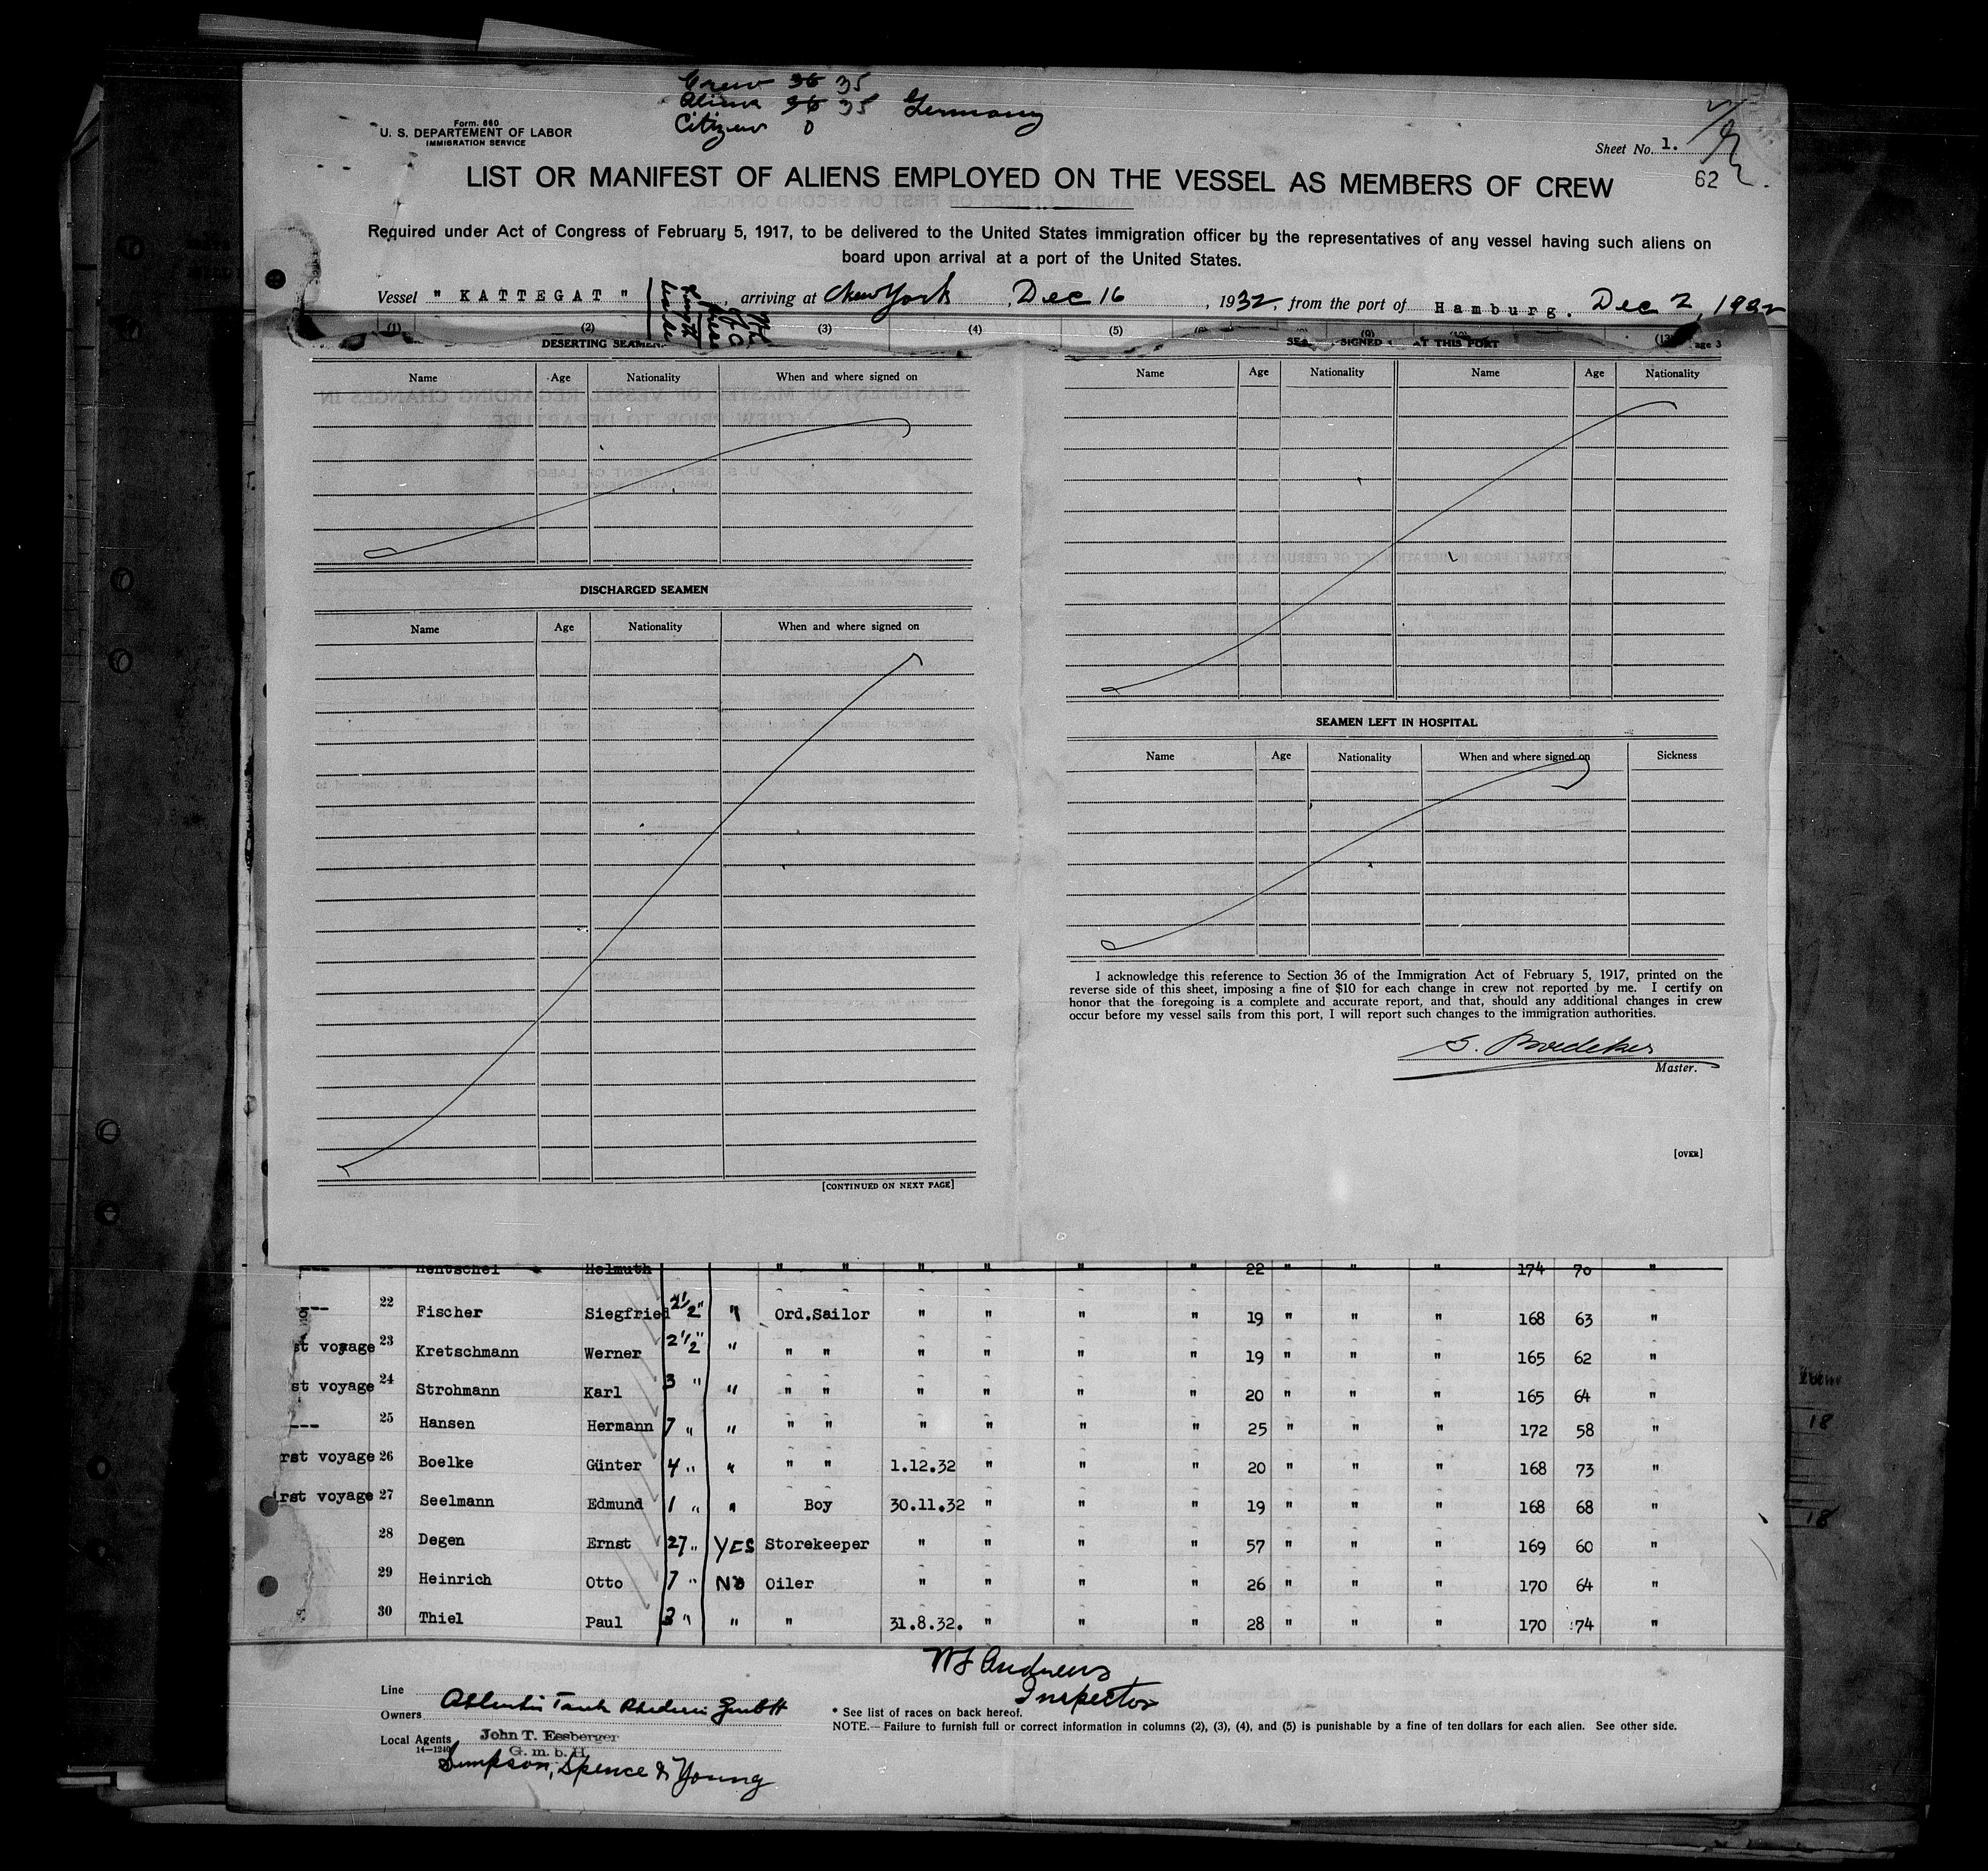 Crew 36 35
Aliens 36 35 Germany
Citizens 0
Form 680
U. S. DEPARTEMENT OF LABOR
IMMIGRATION SERVICE
Sheet No. 1.
62
LIST OR MANIFEST OF ALIENS EMPLOYED ON THE VESSEL AS MEMBERS OF CREW
Required under Act of Congress of February 5, 1917, to be delivered to the United States immigration officer by the representatives of any vessel having such aliens on
board upon arrival at a port of the United States.
Vessel " KATTEGAT " , arriving at New York , Dec 16 , 1932, from the port of Hamburg. Dec 2, 1932
(1) (2) (3) (4) (5) (6) (9) (10) (13)
DESERTING SEAMEN.
Name Age Nationality When and where signed on
DISCHARGED SEAMEN
Name Age Nationality When and where signed on
[CONTINUED ON NEXT PAGE]
SIGNED AT THIS PORT
age 3
Name Age Nationality Name Age Nationality
SEAMEN LEFT IN HOSPITAL
Name Age Nationality When and where signed on Sickness
I acknowledge this reference to Section 36 of the Immigration Act of February 5, 1917, printed on the
reverse side of this sheet, imposing a fine of $10 for each change in crew not reported by me. I certify on
honor that the foregoing is a complete and accurate report, and that, should any additional changes in crew
occur before my vessel sails from this port, I will report such changes to the immigration authorities.
G. Boedeker
Master.
[OVER]
--- Hentschel Helmuth " " " " " " 22 " " " 174 70 "
--- 22 Fischer Siegfried 2 1/2" " Ord.Sailor " " " " 19 " " " 168 63 "
st voyage 23 Kretschmann Werner 2 1/2" " " " " " " " 19 " " " 165 62 "
st voyage 24 Strohmann Karl 3 " " " " " " " " 20 " " " 165 64 "
--- 25 Hansen Hermann 7 " " " " " " " " 25 " " " 172 58 "
rst voyage 26 Boelke Günter 4 " " " " 1.12.32 " " " 20 " " " 168 73 "
irst voyage 27 Seelmann Edmund 1 " " Boy 30.11.32 " " " 19 " " " 168 68 "
28 Degen Ernst 27 " YES Storekeeper " " " " 57 " " " 169 60 "
29 Heinrich Otto 7 " No Oiler " " " " 26 " " " 170 64 "
30 Thiel Paul 3 " " " 31.8.32. " " " 28 " " " 170 74 "
18
18
W J Andrews
Inspector
Line
Owners Atlantic Tank Rhederei GmbH
Local Agents John T. Essberger
14—1240 G. m. b. H.
Simpson, Spence & Young
* See list of races on back hereof.
NOTE.— Failure to furnish full or correct information in columns (2), (3), (4), and (5) is punishable by a fine of ten dollars for each alien. See other side.